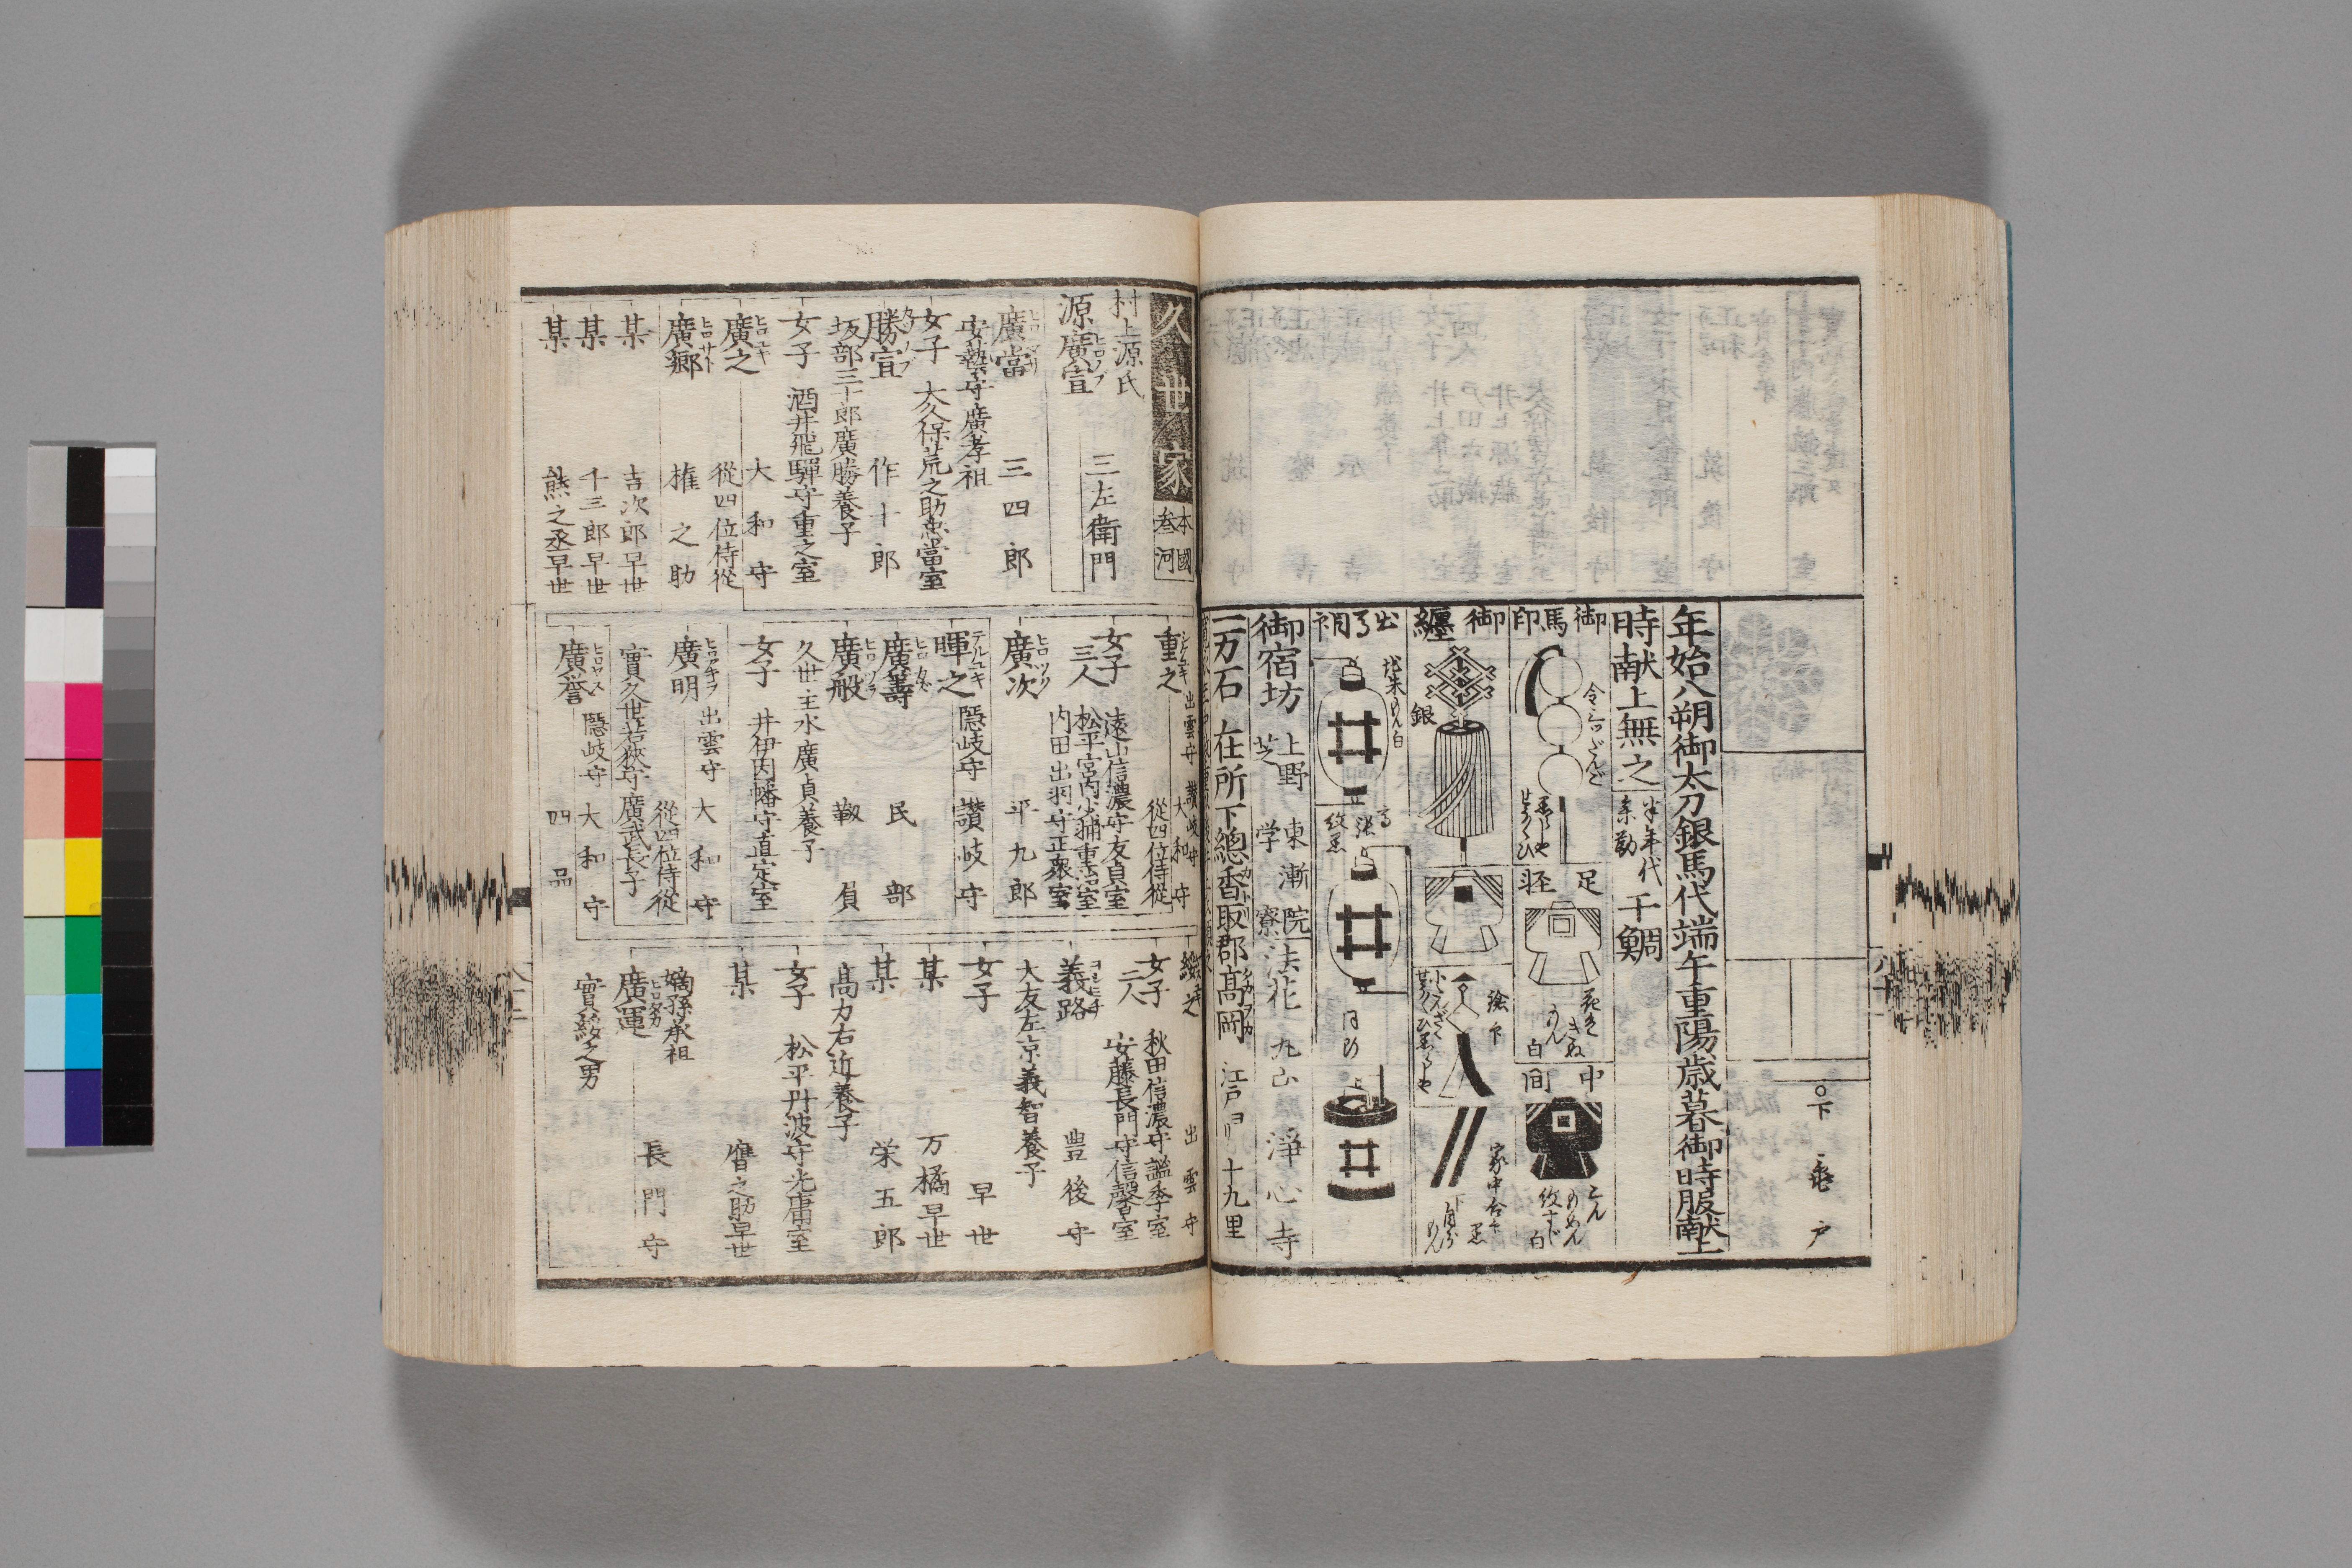 年始八朔御太刀銀馬代端午重陽歳暮御時服献上
時献上無之
半年代
参勤
干鯛
御馬印
足軽
白
中間
白
御纏
銀
家中合印
御宿坊
上野東漸院
芝学寮
法花
丸山
淨心寺
一万石
在所下總香取郡髙岡
カトリ
タカヲカ
江戸ヨリ
十九里
八十
久世家
本國
叁河
村上源氏
源廣宣
ヒロノブ
三左衛門
廣當
三四郎
安藝守廣孝祖
女子
大久保荒之助忠當室
勝宣
カツノブ
作十郎
坂部三十郎廣勝養子
女子
酒井飛驒守重之室
廣之
ヒロユキ
大和守
從四位侍從
廣郷
ヒロサト
権之助
某
吉次郎早世
某
千三郎早世
某
熊之丞早世
重之
シゲユキ
出雲守
讃岐守
大和守
從四位侍從
女子
三人
遠山信濃守友貞室
松平宮内少輔重治室
内田出羽守正衆室
廣次
ヒロツグ
平九郎
暉之
テルユキ
隠岐守
讃岐守
廣籌
ヒロカズ
民部
廣般
靱負
久世主水廣貞養子
女子
井伊因幡守直定室
廣明
ヒロアキラ
出雲守
大和守
從四位侍從
實久世若狹守廣武長子
廣誉
ヒロヤス
隠岐守
大和守
四品
出雲守
女子
二人
秋田信濃守謐季室
安藤長門守信馨室
義路
ヨシミチ
豊後守
大友左京義智養子
女子
早世
某
万橘早世
某
栄五郎
髙力右近養子
女子
松平丹波守光庸室
某
嫡孫承祖
廣運
ヒロタカ
長門守